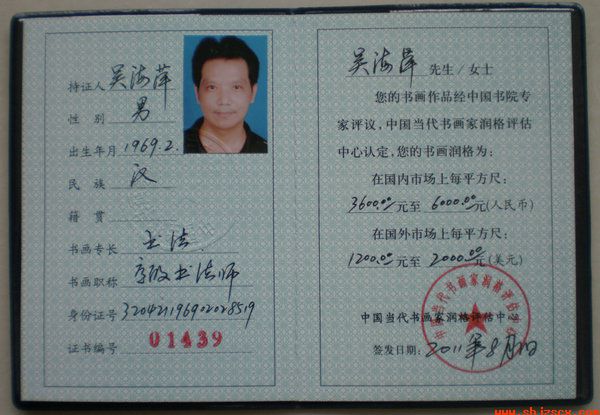 持证人 吴海萍
性别 男
出生年月 1969.2.
民族 汉
籍贯
书画专长 书法
书画职称 高级书法师
身份证号 320421196902028519
证书编号 01439
吴海萍 先生/女士
您的书画作品经中国书院专
家评议,中国当代书画家润格评估
中心认定,您的书画润格为:
在国内市场上每平方尺:
3600.00元至 6000.00元(人民币)
在国外市场上每平方尺:
1200.00元至 2000.00(美元)
中国当代书画家润格评估中心
中国当代书画家润格评估中心
签发日期: 2011年8月1日
www.shjzscx.com